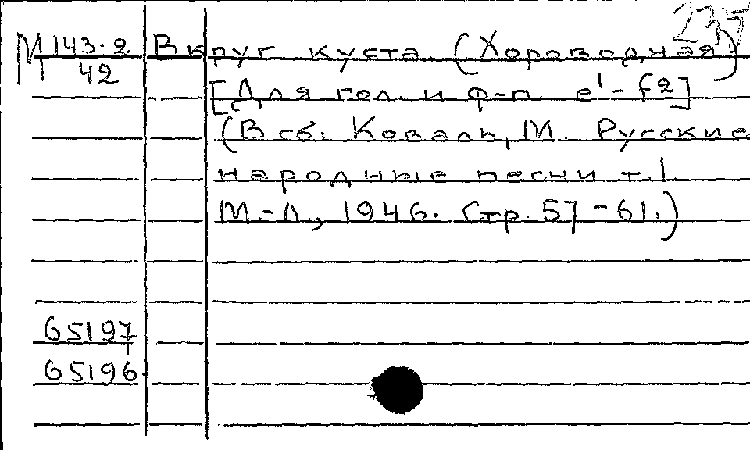 237
М 143-2 Вкруг куста. (Хороводная)
42
[Для гол. и ф-п. e¹-f2]
(В сб. Коваль, М. Русские
народные песни т.1.
М.-Л., 1946. Стр. 57-61.)
65197
65196